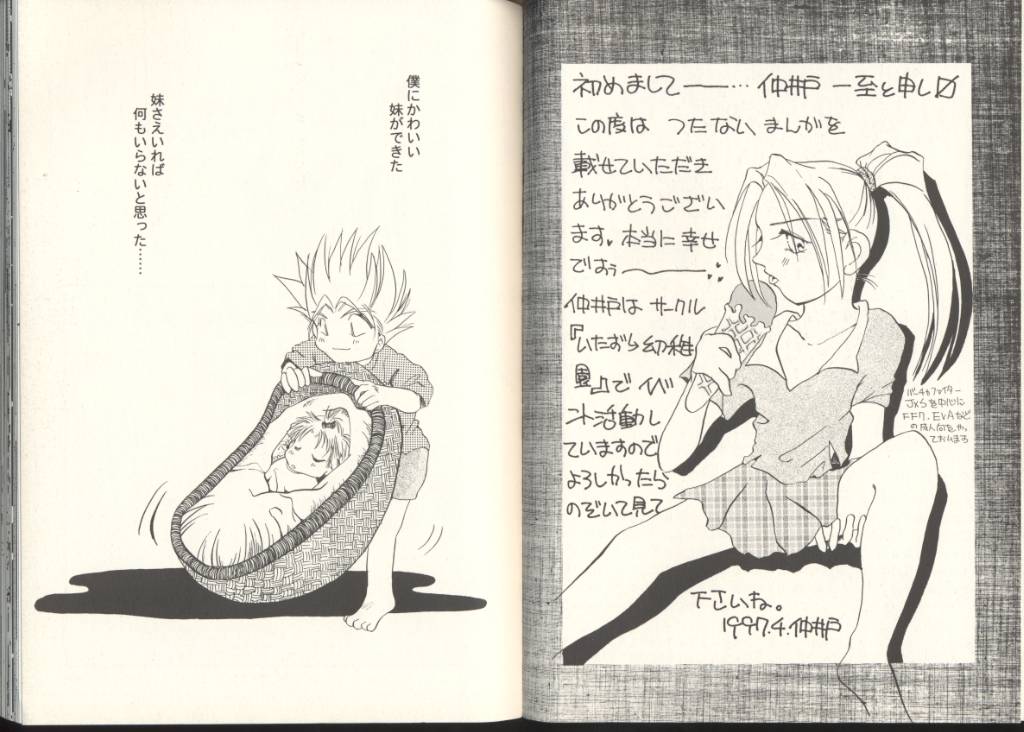 僕にかわいい
妹ができた
妹さえいれば
何もいらないと思った……
初めまして――…仲井戸 一至と申し〼
この度は つたない、まんがを
載せていただき
ありがとうござい
ます。本当に幸せ
ですぅ――♥♥
仲井戸は サークル
『いたずら幼稚
園』で イベ
ント活動し
ていますので
よろしかったら
のぞいて見て
下さいね。
1997.4.仲井戸
バーチャファイター
J×Sを中心に
FF7. EVAなど
の成人向をやっ
ておりまする